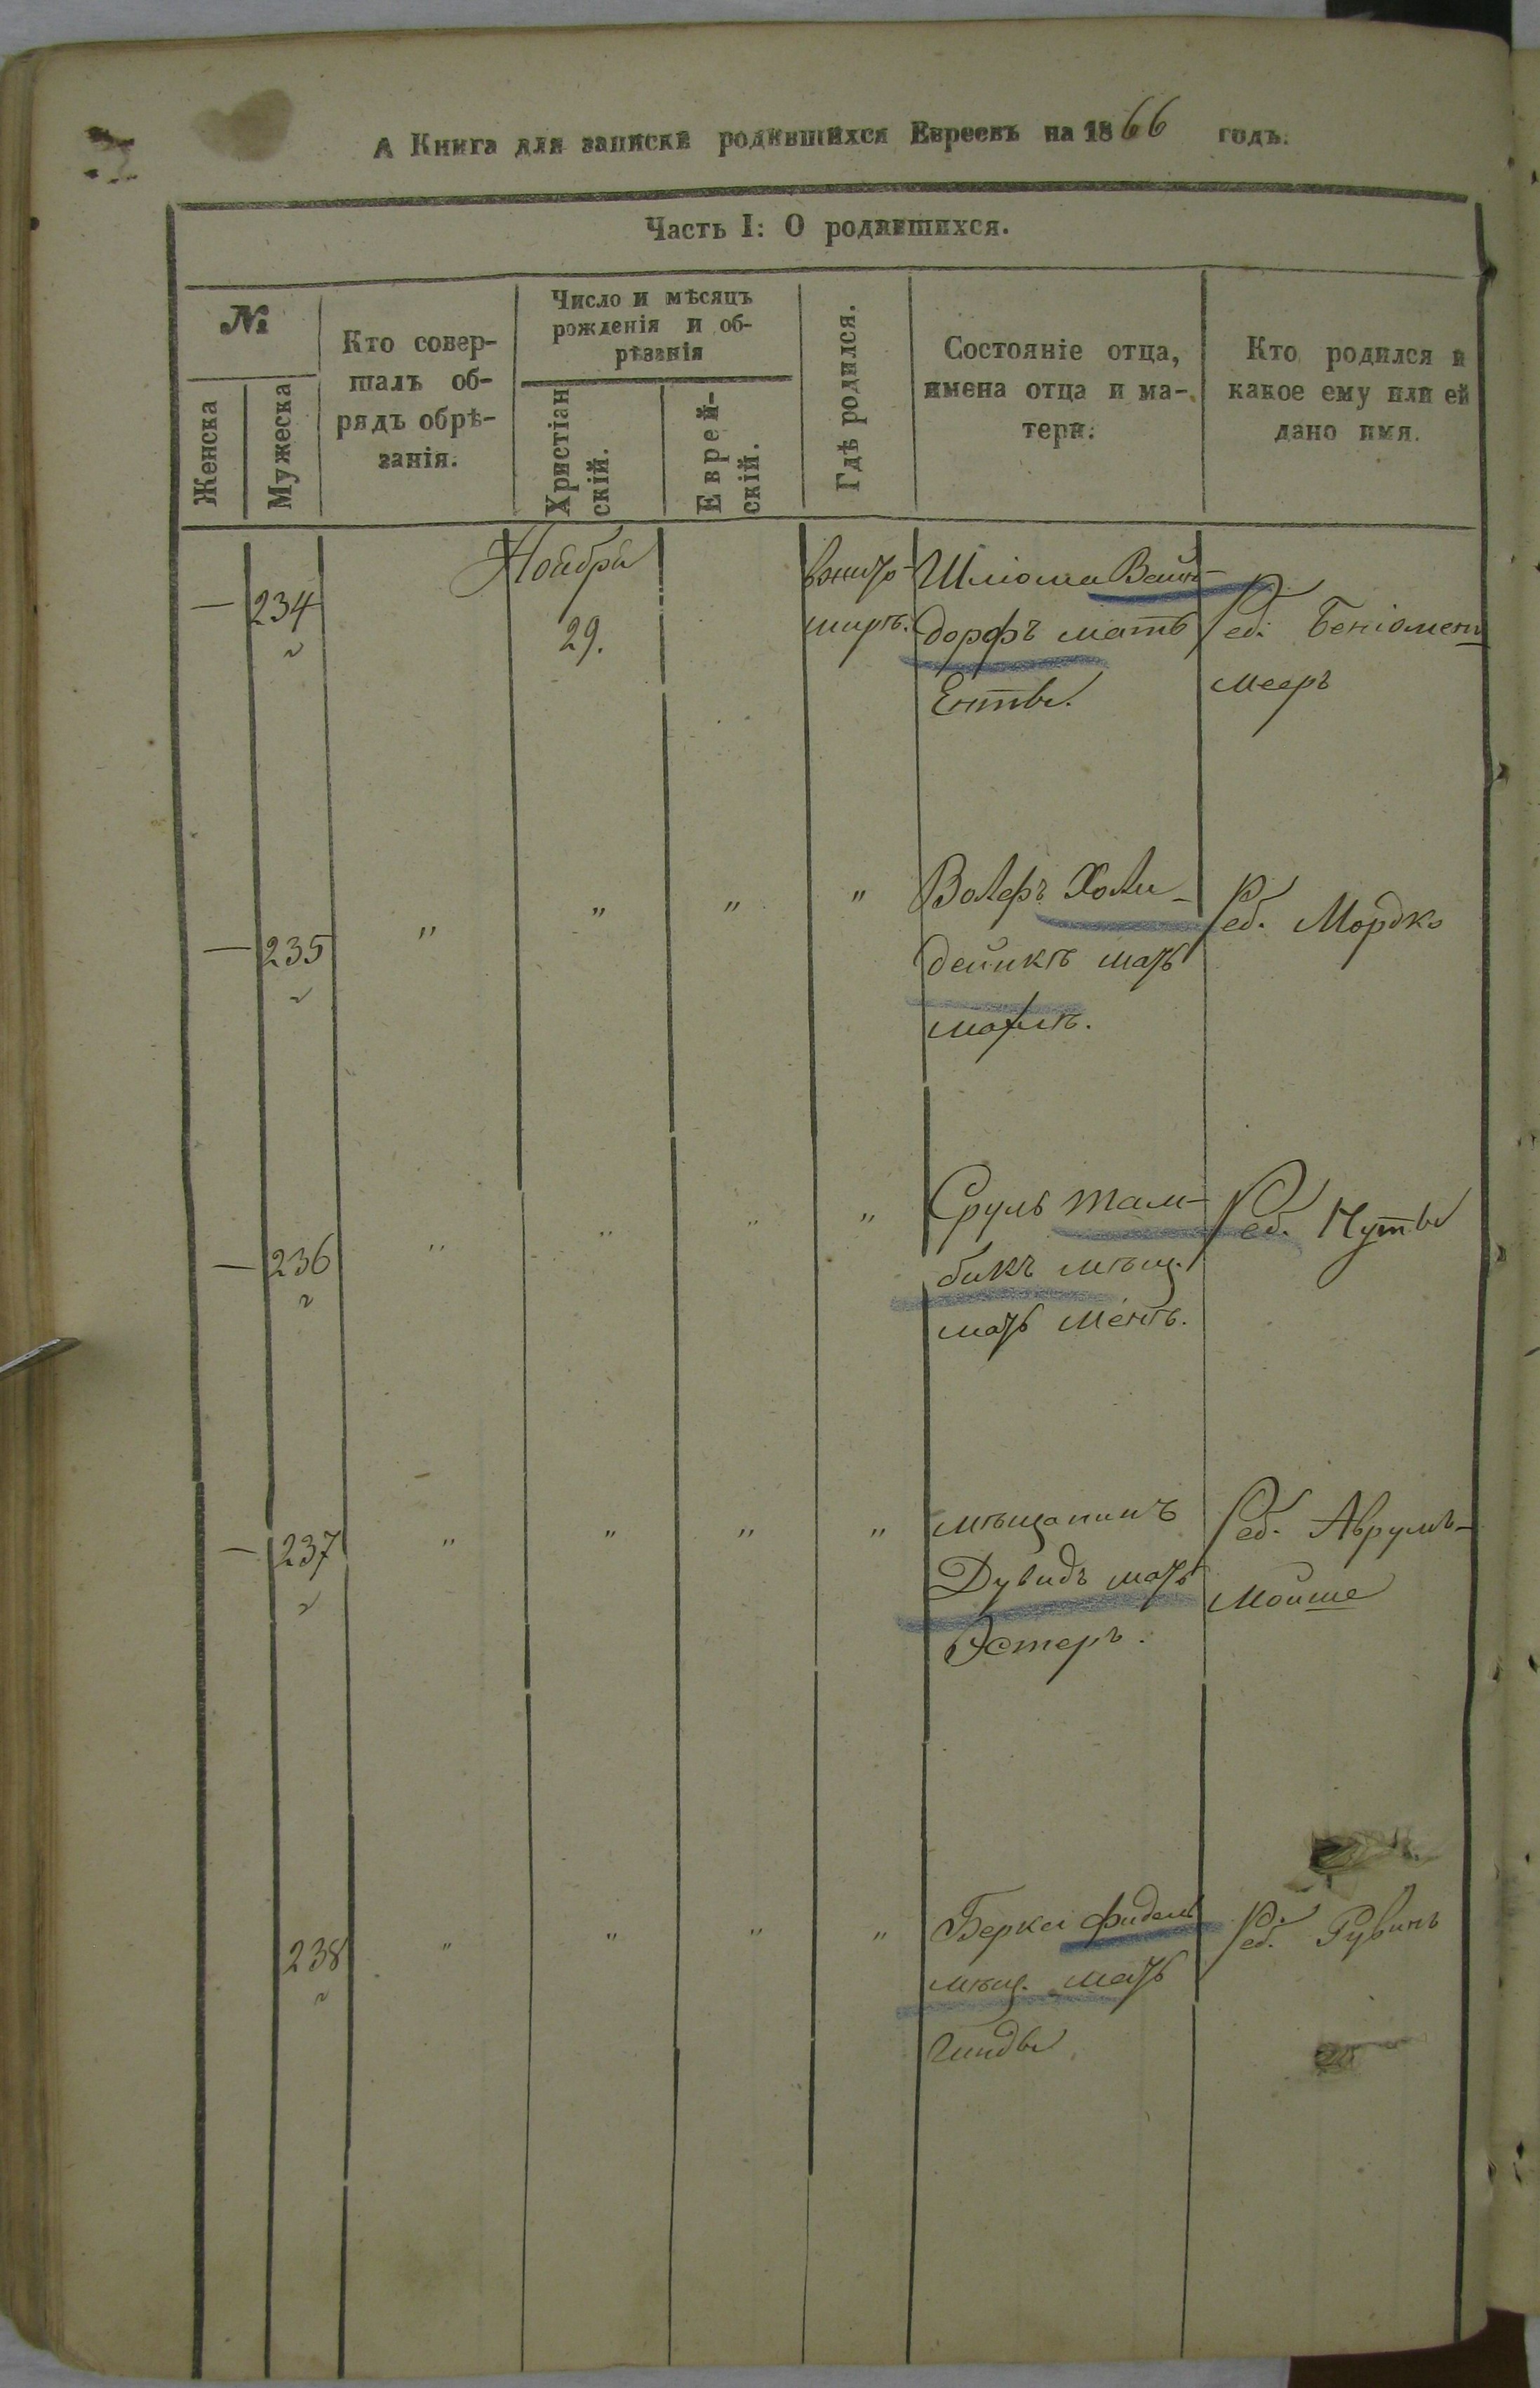 А Книга для записки родившихся Евреевъ на 1866 годъ.
Часть I: О родившихся.
№
Женска
Мужеска
Кто совер-
шалъ об-
рядъ обрѣ-
занія.
Число и мѣсяцъ
рожденія и об-
рѣзанія
Христіан
скій.
Еврей-
скій.
Гдѣ родился.
Состояніе отца,
имена отца и ма-
тери.
Кто родился и
какое ему или ей
дано имя.
— 234
Ноября
29.
вжито-
миръ.
Шліома Вайн-
дорфъ мать
Ентя.
Реб. Беніомен
Меер
— 235 " " " "
Волфъ Холи-
дейикъ мать
Малѣ.
Реб. Мордко
— 236 " " " "
Сруль Там-
бикъ мѣщ.
мать Менѣ.
Реб. Нутя
— 237 " " " "
мѣщанинъ
Дувидъ мать
Эстеръ.
Реб. Аврумъ-
Мойше
238 " " " "
Берка Фидель
мѣщ. мать
Гиндя
Реб. Рувинъ